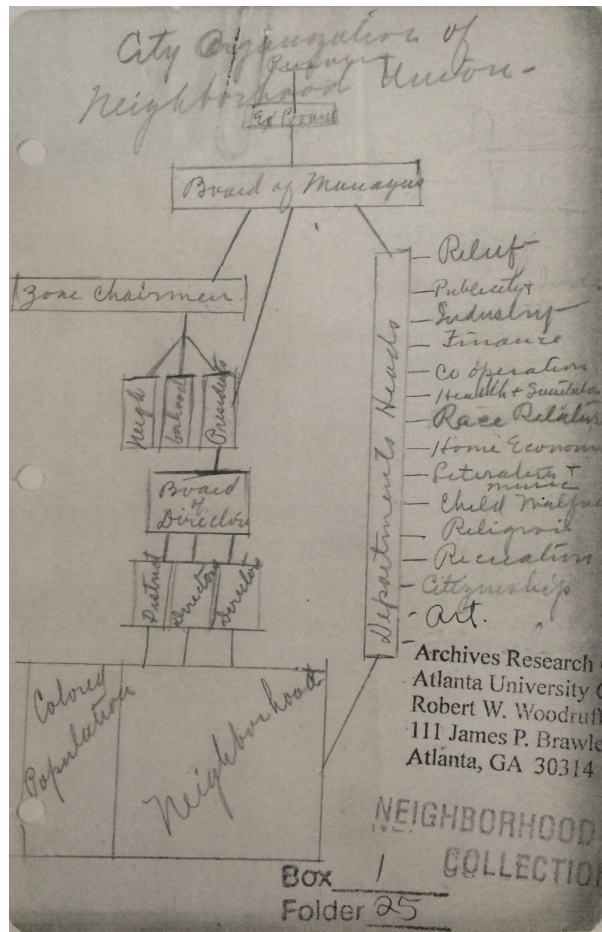 City Organization of
Neighborhood Union-
Ex Board
Board of Managers
Zone Chairmen
Neigh
borhood
Presidents
Board
of
Director
District
Directors
Director
Colored
Population
Neighborhood
Departments Heads
Relief
Publicity +
Industry
Finance
Co operation
Health + Sanitation
Race Relation
Home Econom
Literature +
music
Child Welfare
Religious
Recreation
Citizenship
Art.
Archives Research
Atlanta University C
Robert W. Woodruff
111 James P. Brawle
Atlanta, GA 30314
NEIGHBORHOOD
COLLECTION
Box 1
Folder 25